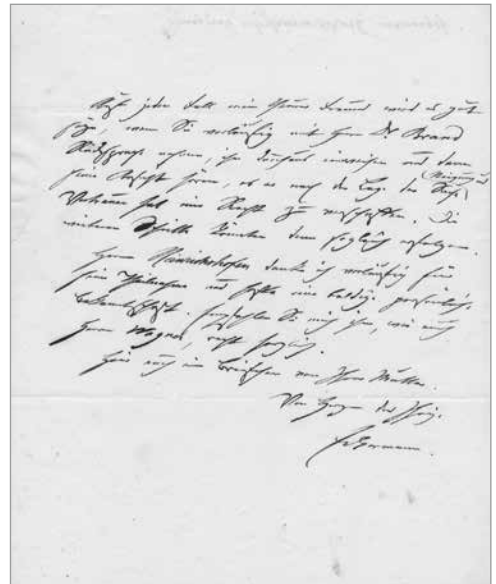 Auf jeden Fall mein theurer Freund wird es gut
sein, wenn Sie vorläufig mit Herrn Dr. Brand
Rücksprache nehmen, ihn durchaus einweihen und dann
seine Ansicht hören, ob es nach der Lage der Sache
eine zu verschaffen. Die
weiteren Schritte könnten dann sogleich erfolgen.
Herrn Heinrichshofen danke ich vorläufig für
seine Theilnahme und hoffe eine baldige persönliche
Bekanntschaft. Empfehlen Sie mich ihm, wie auch
Herrn Wagner, recht herzlich.
Hier auch ein Briefchen von Ihrer Mutter.
Von Herzen der Ihrige